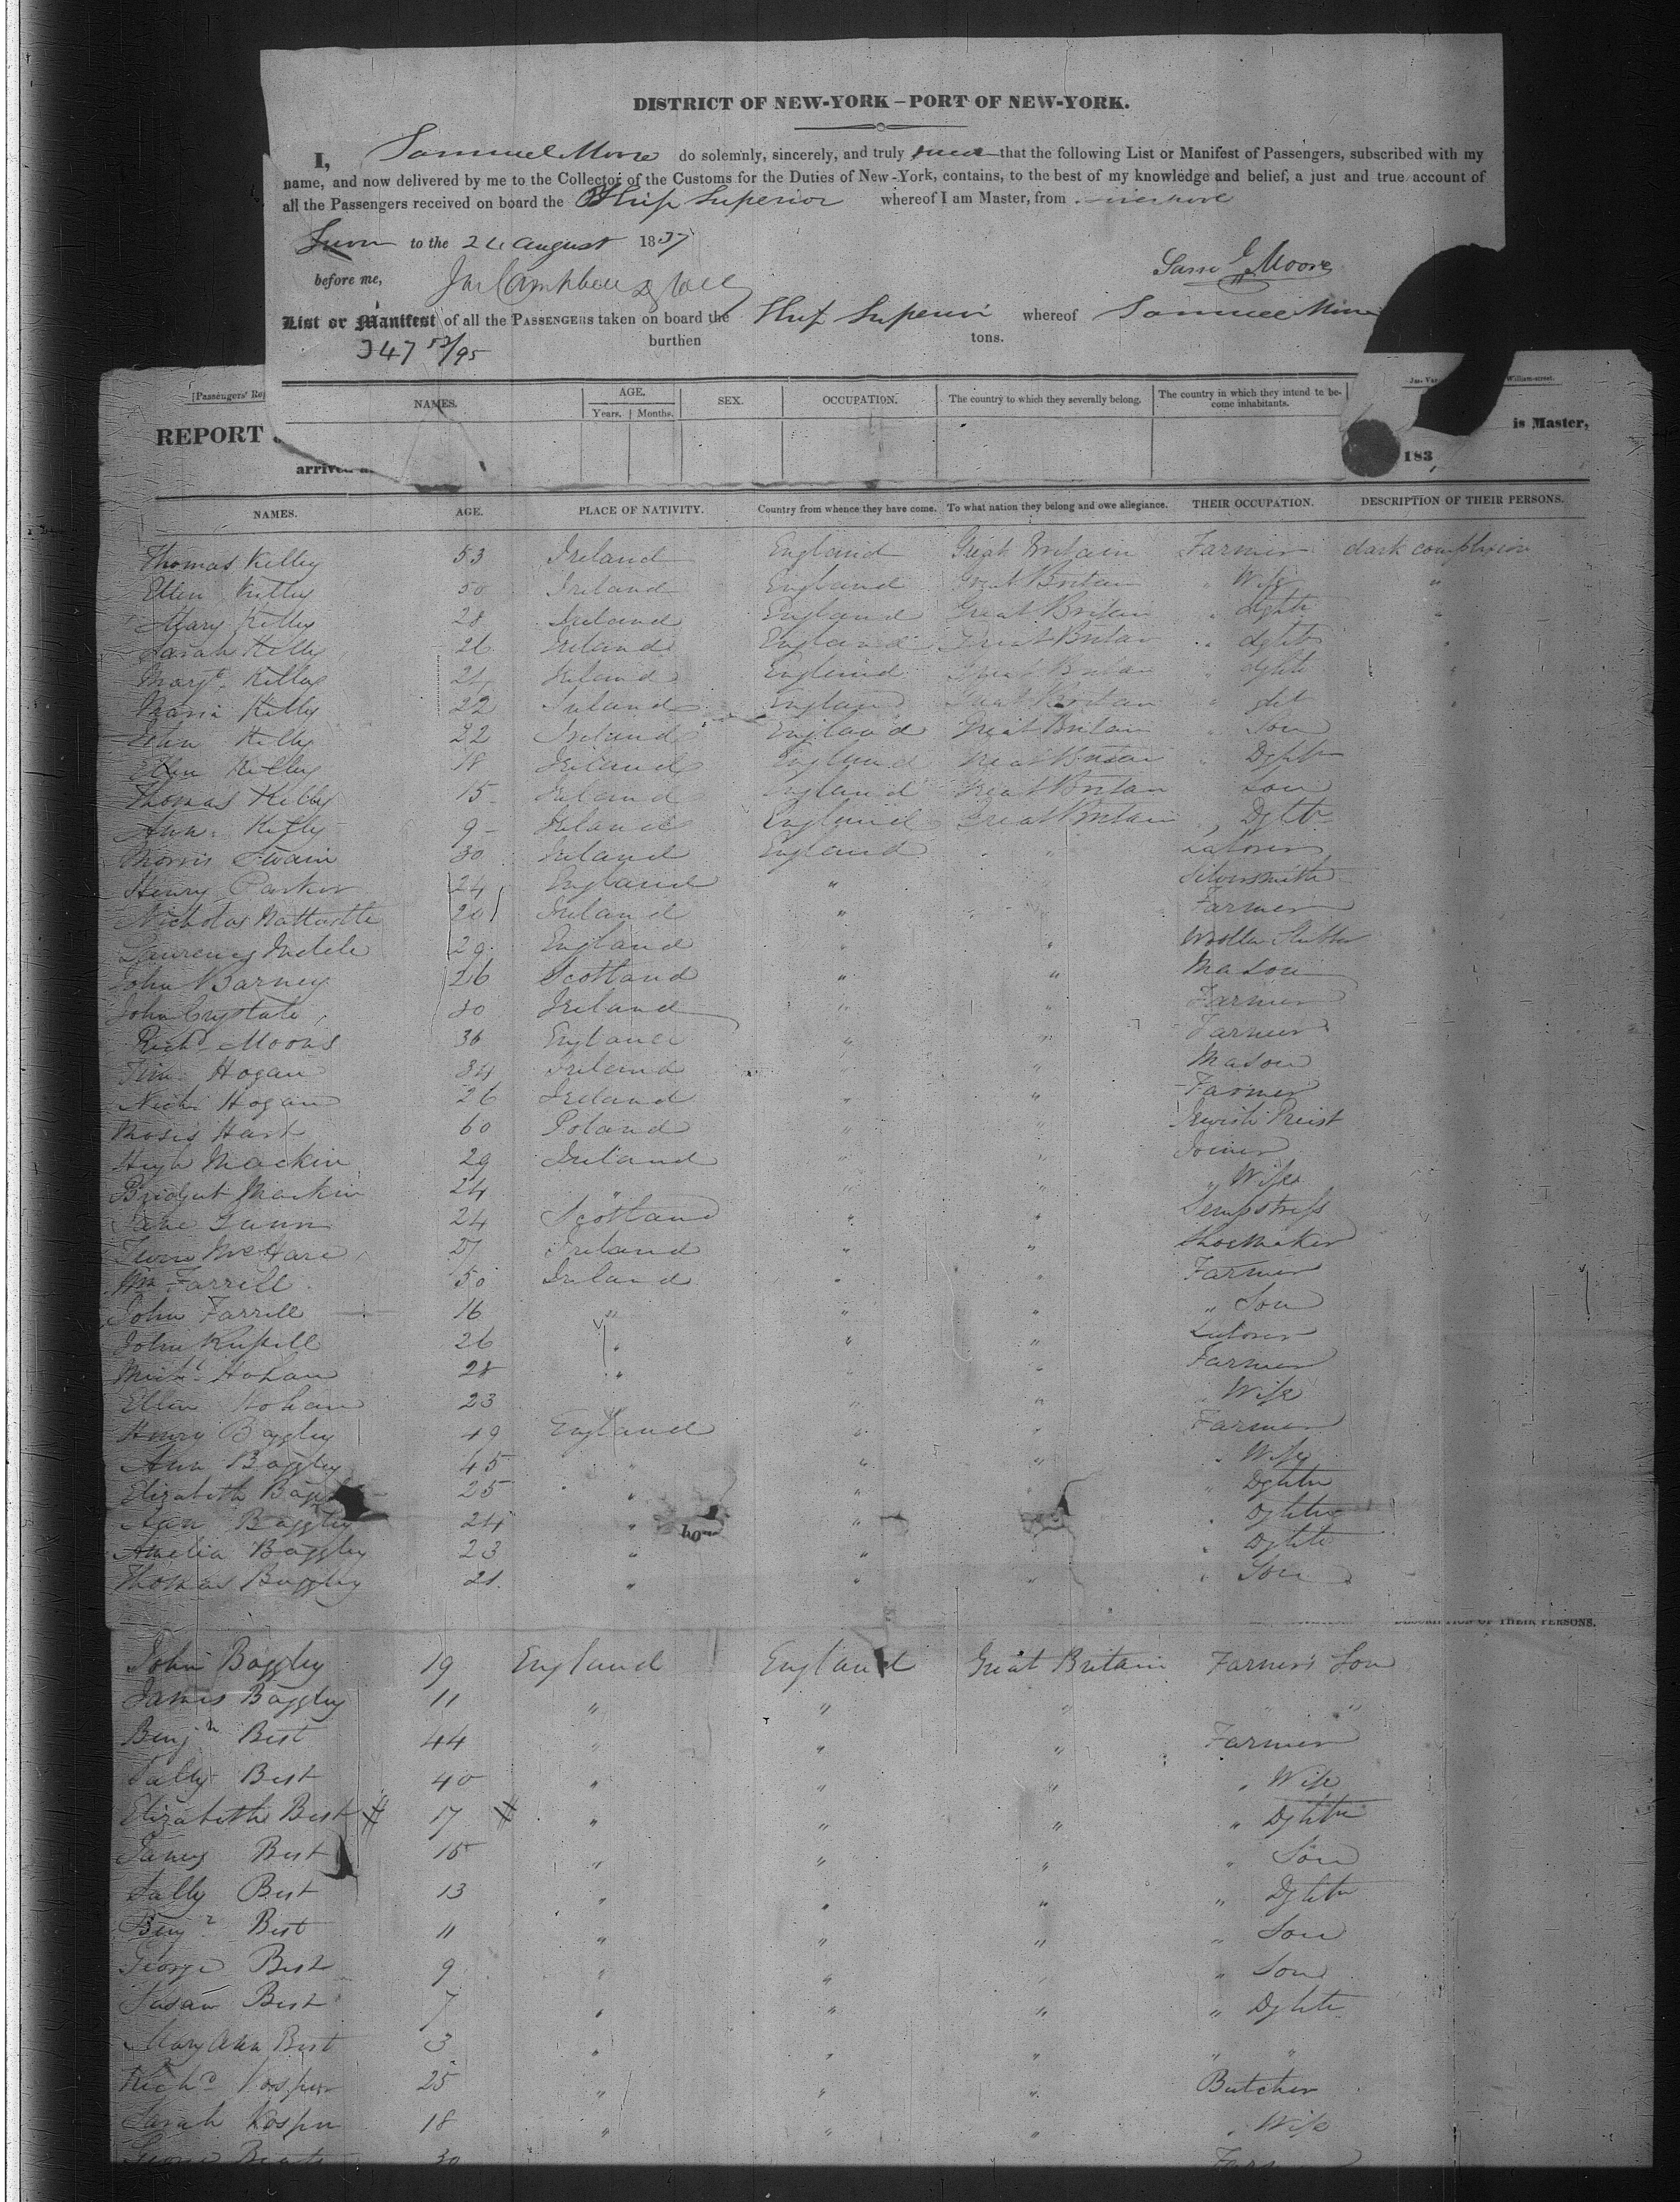 DISTRICT OF NEW-YORK – PORT OF NEW-YORK.
I, Samuel Moore do solemnly, sincerely, and truly that the following List or Manifest of Passengers, subscribed with my
name, and now delivered by me to the Collector of the Customs for the Duties of New-York, contains, to the best of my knowledge and belief, a just and true account of
all the Passengers received on board the Ship Superior whereof I am Master, from
to the August 1837
Saml Moore
before me,
List or Manifest of all the PASSENGERS taken on board the Ship Superior whereof Samuel
burthen tons.
347 53/95
NAMES. AGE. Years. Months. SEX. OCCUPATION. The country to which they severally belong. The country in which they intend to become inhabitants.
[Passengers' Rep William-street.
REPORT is Master,
arrived 183
NAMES. AGE. PLACE OF NATIVITY. Country from whence they have come. To what nation they belong and owe allegiance. THEIR OCCUPATION. DESCRIPTION OF THEIR PERSONS.
Thomas Kelly 53 Ireland England Great Britain Farmer dark complexion
Ellen Kelly 50 Ireland England Great Britain " Wife "
Mary Kelly 28 Ireland England Great Britain "
Sarah Kelly 26 Ireland England Great Britain "
Margt Kelly 24 Ireland England Great Britain "
Maria Kelly 22 Ireland England Great Britain "
Kelly 22 Ireland England Great Britain " Son
Ellen Kelly 18 Ireland England Great Britain "
Thomas Kelly 15 Ireland England Great Britain Son
Ann Kelly 9 Ireland England Great Britain "
Morris Swain 30 Ireland England " "
Henry Parker 24 England " Silversmith
Nicholas 20 Ireland " " Farmer
29 England " " Woollen
John Barney 26 Scotland " " Mason
John 30 Ireland " " Farmer
Richd Moons 36 England " " Farmer
Tim Hogan 34 Ireland " Mason
Hogan 26 Ireland " " Farmer
Moses Hart 60 Poland " " Jewish Preist
Hugh Mackin 29 Ireland " " Joiner
Bridget Mackin 24 " " " " Wife
Jane Gunn 24 Scotland " " Sempstress
27 Ireland " " Shoemaker
Wm Farrell 50 Ireland " " Farmer
John Farrell 16 " " " " Son
John Russell 26 " " "
Michl Hohan 28 " " " Farmer
Ellen Hohan 23 " " " Wife
Henry Baggley 49 England " " Farmer
Ann Baggley 45 " " " " Wife
Elizabeth 25 " " " " Dghter
Ann Baggley 24 " " " Dghter
Amelia Baggley 23 " " "
Thomas Baggley 21 " " " " Son
DESCRIPTION OF THEIR PERSONS.
John Baggley 19 England England Great Britain Farmer's Son
James Baggley 11 " " " " "
Benjn Best 44 " " " Farmer
Sally Best 40 " " " " Wife
Elizabeth Best # 17 # " " " " Dghter
James Best 15 " " " " Son
Sally Best 13 " " " " Dghter
Benjn Best 11 " " " " Son
George Best 9 " " " " Son
Susan Best 7 " " " "
Mary Ann Best 3 " " " " "
Richd Vosper 25 " " " Butcher
Sarah Vosper 18 " " " " Wife
George 30